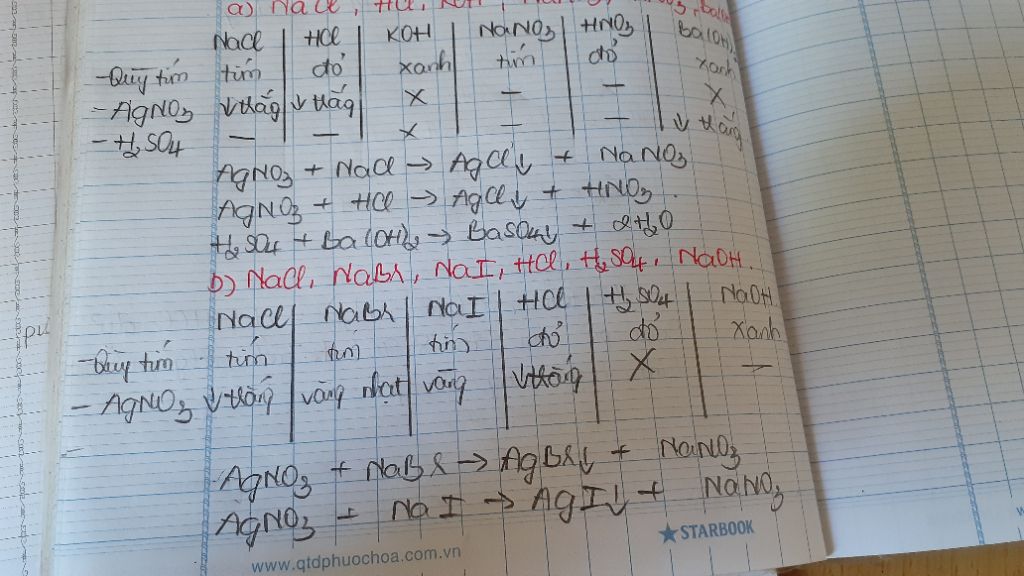 a) NaCl, HCl, KOH,
NaCl | HCl | KOH | NaNO₃ | HNO₃ | Ba(OH)₂
- Quỳ tím tím đỏ xanh tím đỏ xanh
- AgNO₃ ↓ trắng ↓ trắng X — — X
- H₂SO₄ — — X — — ↓ trắng
AgNO₃ + NaCl → AgCl↓ + NaNO₃
AgNO₃ + HCl → AgCl↓ + HNO₃.
H₂SO₄ + Ba(OH)₂ → BaSO₄↓ + 2H₂O
b) NaCl, NaBr, NaI, HCl, H₂SO₄, NaOH.
NaCl | NaBr | NaI | HCl | H₂SO₄ | NaOH
- Quỳ tím tím tím tím đỏ đỏ xanh
- AgNO₃ ↓ trắng vàng nhạt vàng ↓ trắng X —
AgNO₃ + NaBr → AgBr↓ + NaNO₃
AgNO₃ + NaI → AgI↓ + NaNO₃
★ STARBOOK
www.qtdphuochoa.com.vn